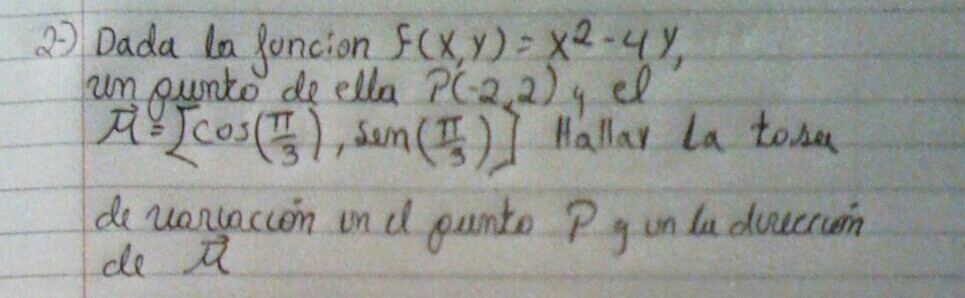 2-) Dada la funcion f(x,y) = x² - 4y,
un punto de ella P(-2,2) y el
μ⃗ = [cos(π/3), sen(π/3)] Hallar la tasa
de variación en el punto P y en la dirección
de μ⃗